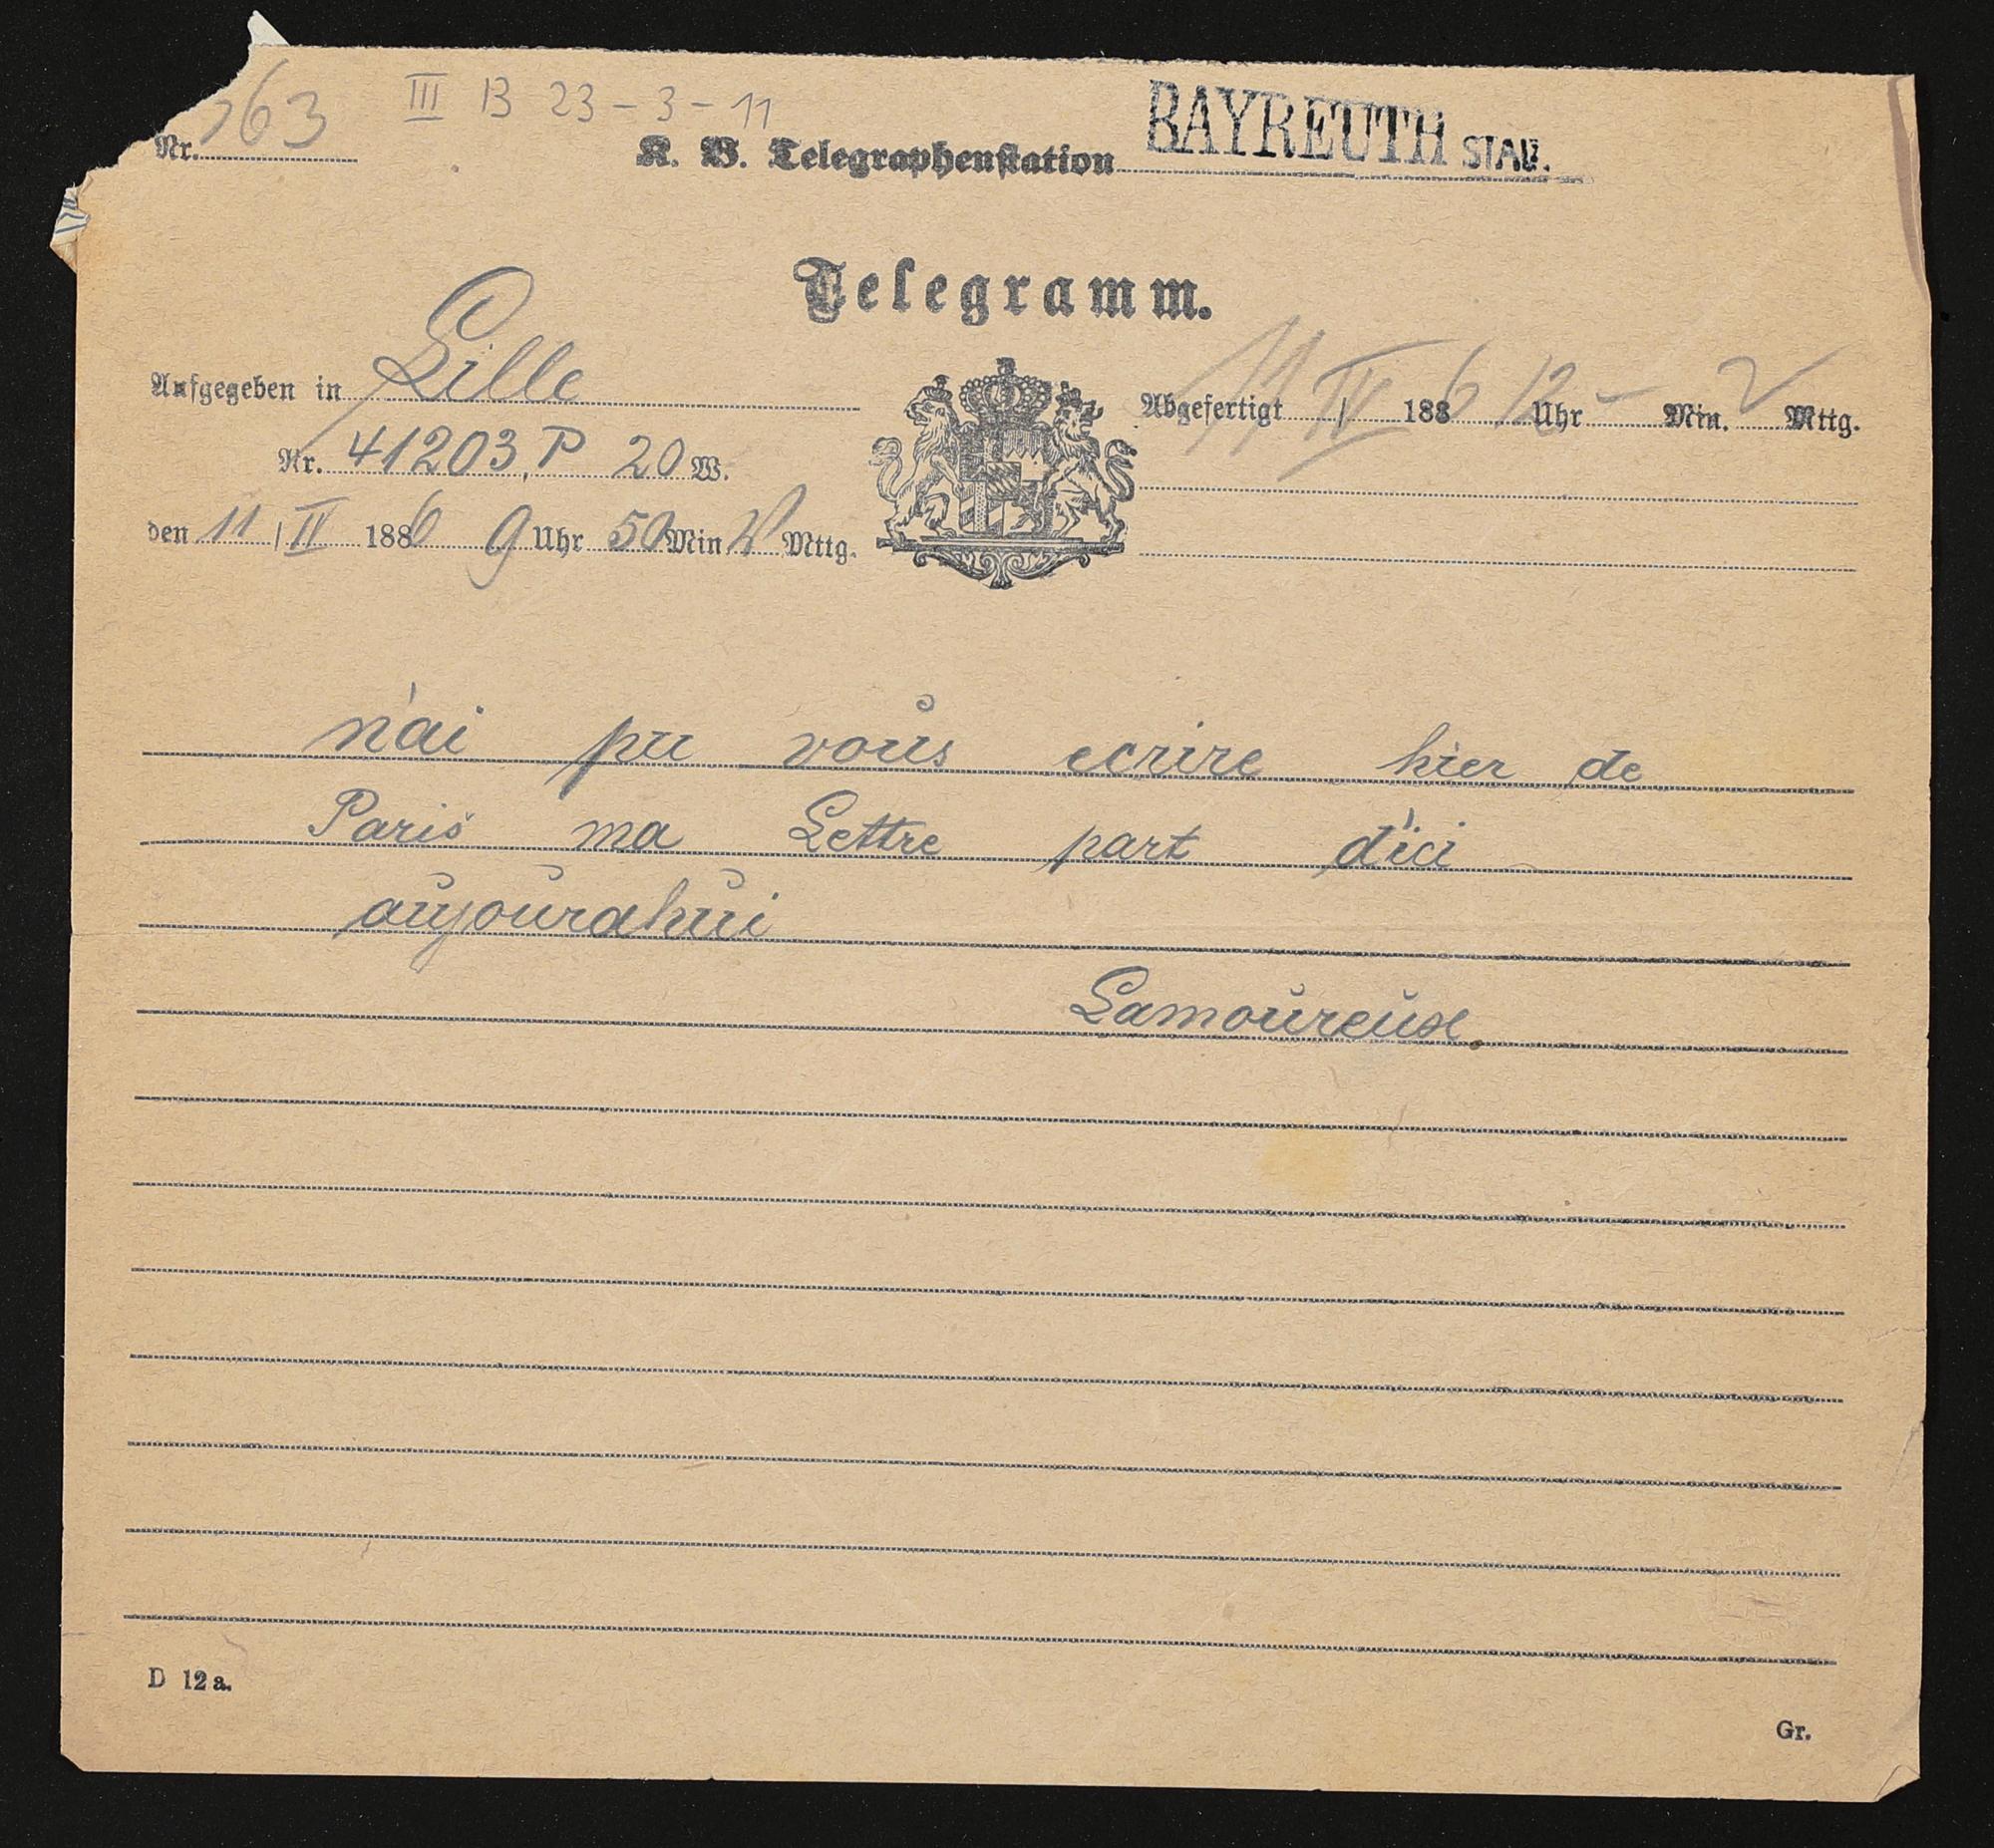 Nr. 763 III B 23-3-11
K. B. Telegraphenstation BAYREUTH STADT.
Telegramm.
Aufgegeben in Lille
Abgefertigt 11/II 1886 12 Uhr - Min. V Mttg.
Nr. 41203, P 20 W.
den 11/II 1886 9 Uhr 50 Min V Mttg.
n'ai pu vous ecrire hier de
Paris ma Lettre part d'ici
aujourdhui
Lamoureux.
D 12a.
Gr.